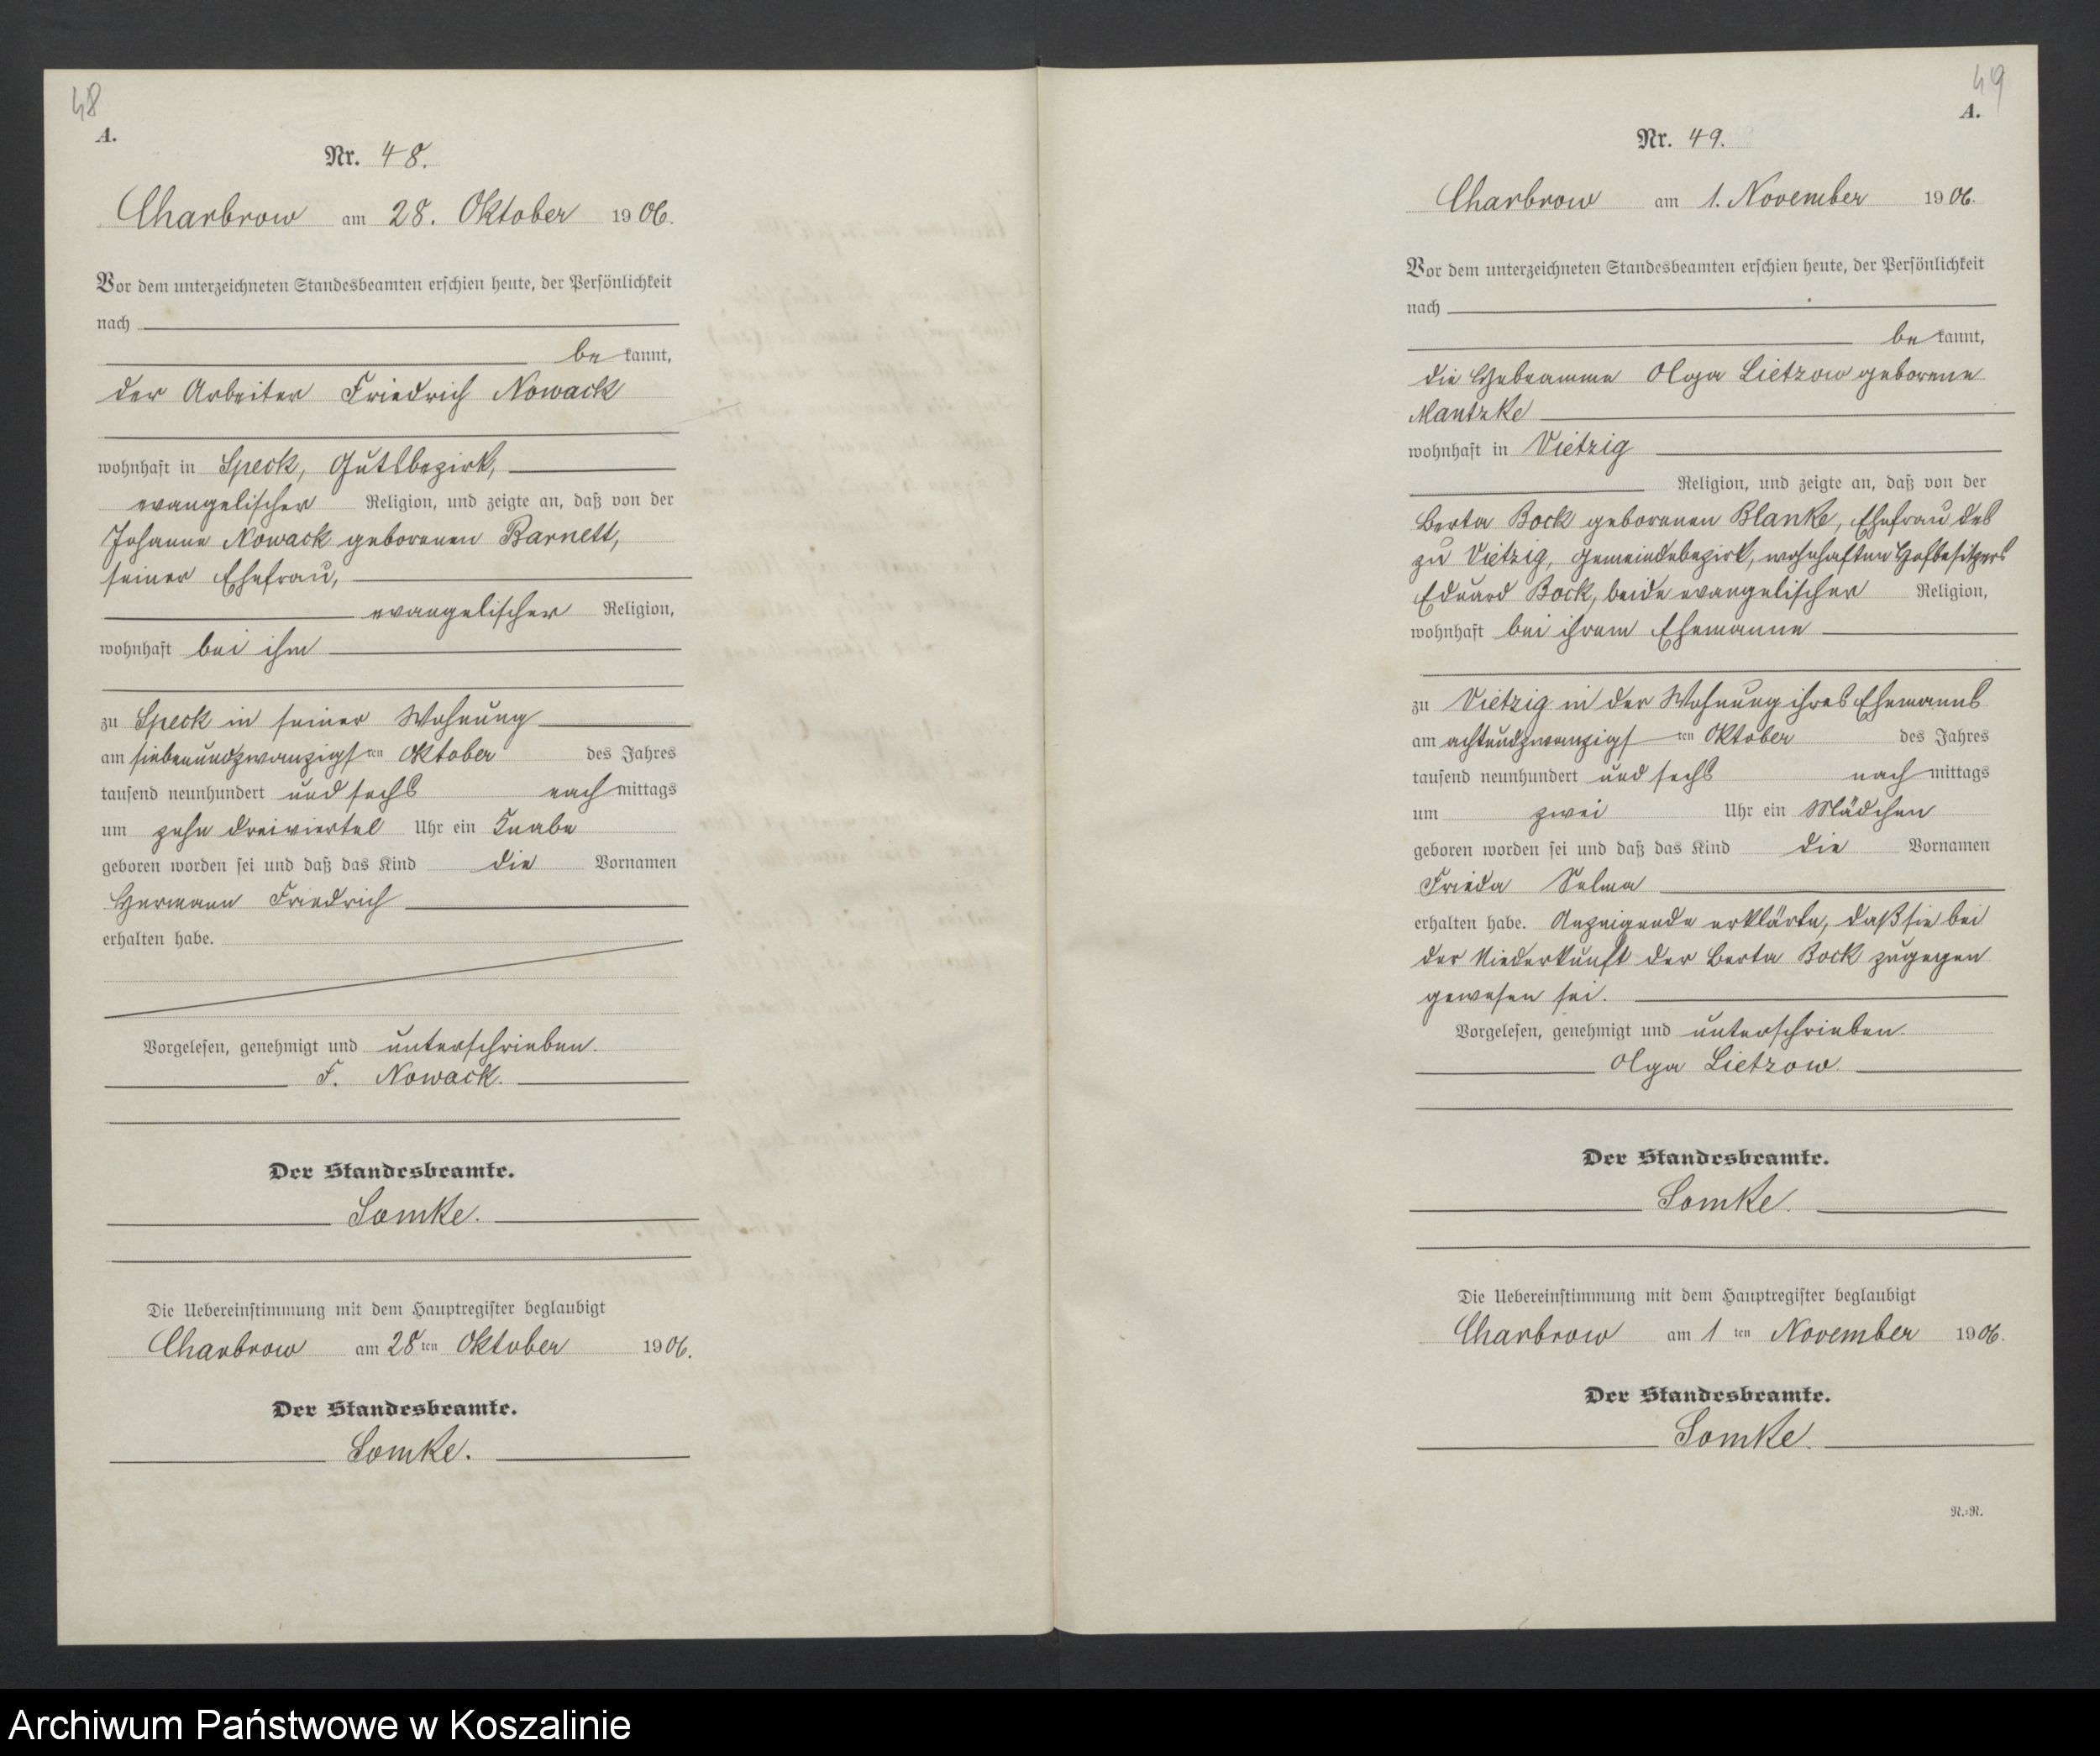 48
A.
Nr. 48.
Charbrow am 28. Oktober 1906.
Vor dem unterzeichneten Standesbeamten erschien heute, der Persönlichkeit
nach
be kannt,
der Arbeiter Friedrich Nowack
wohnhaft in Speck, Gutsbezirk,
evangelischer Religion, und zeigte an, daß von der
Johanne Nowack geborenen Barnett,
seiner Ehefrau,
evangelischer Religion,
wohnhaft bei ihm
zu Speck in seiner Wohnung
am siebenundzwanzigsten Oktober des Jahres
tausend neunhundert und sechs nach mittags
um zehn dreiviertel Uhr ein Knabe
geboren worden sei und daß das Kind die Vornamen
Hermann Friedrich
erhalten habe.
Vorgelesen, genehmigt und unterschrieben.
F. Nowack.
Der Standesbeamte.
Lomke.
Die Uebereinstimmung mit dem Hauptregister beglaubigt
Charbrow am 28ten Oktober 1906.
Der Standesbeamte.
Lomke.
49
A.
Nr. 49.
Charbrow am 1. November 1906.
Vor dem unterzeichneten Standesbeamten erschien heute, der Persönlichkeit
nach
be kannt,
die Hebeamme Olga Lietzow geborene
Mantzke
wohnhaft in Vietzig
Religion, und zeigte an, daß von der
Berta Bock geborenen Blanke, Ehefrau des
zu Vietzig, Gemeindebezirk, wohnhaften Hofbesitzers
Eduard Bock, beide evangelischer Religion,
wohnhaft bei ihrem Ehemanne
zu Vietzig in der Wohnung ihres Ehemanns
am achtundzwanzigsten Oktober des Jahres
tausend neunhundert und sechs nach mittags
um zwei Uhr ein Mädchen
geboren worden sei und daß das Kind die Vornamen
Frieda Selma
erhalten habe. Anzeigende erklärte, daß sie bei
der Niederkunft der Berta Bock zugegen
gewesen sei.
Vorgelesen, genehmigt und unterschrieben.
Olga Lietzow.
Der Standesbeamte.
Lomke.
Die Uebereinstimmung mit dem Hauptregister beglaubigt
Charbrow am 1 ten November 1906.
Der Standesbeamte.
Lomke.
R.=R.
Archiwum Państwowe w Koszalinie